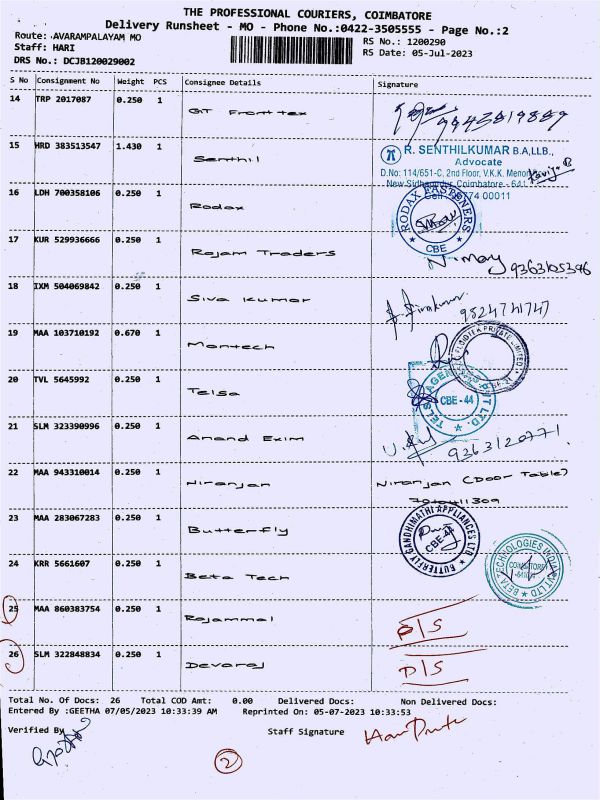 THE PROFESSIONAL COURIERS, COIMBATORE
Delivery Runsheet - MO - Phone No.:0422-3505555 - Page No.:2
Route: AVARAMPALAYAM MO
RS No.: 1200290
Staff: HARI
RS Date: 05-Jul-2023
DRS No.: DCJB120029002
S No Consignment No Weight PCS Consignee Details Signature
14 TRP 2017087 0.250 1 GT Fronttex 9943819889
15 HRD 383513547 1.430 1 Senthil
R. SENTHILKUMAR B.A,LLB.,
Advocate
D.No: 114/651-C, 2nd Floor, V.K.K. Menon
New Sidhapudur, Coimbatore - 641
16 LDH 700358106 0.250 1 Rodax
RODAX FASTENERS
CBE
17 KUR 529936666 0.250 1 Rajam Traders
9363105396
18 IXM 504069842 0.250 1 Siva Kumar
9524741747
19 MAA 103710192 0.670 1 Mantech
20 TVL 5645992 0.250 1 Telsa
CBE - 44
21 SLM 323390996 0.250 1 Anand Exim
9363120771.
22 MAA 943310014 0.250 1 Niranjan Niranjan (Door Table)
23 MAA 283067283 0.250 1 Butterfly
BUTTERFLY GANDHIMATHI APPLIANCES LTD
CBE-44
24 KRR 5661607 0.250 1 Beta Tech
BETA TECHNOLOGIES INDIA PVT LTD
COIMBATORE
25 MAA 860383754 0.250 1 Rajammal D/S
26 SLM 322848834 0.250 1 Devaraj D/S
Total No. Of Docs: 26 Total COD Amt: 0.00 Delivered Docs: Non Delivered Docs:
Entered By :GEETHA 07/05/2023 10:33:39 AM Reprinted On: 05-07-2023 10:33:53
Verified By
Staff Signature
2